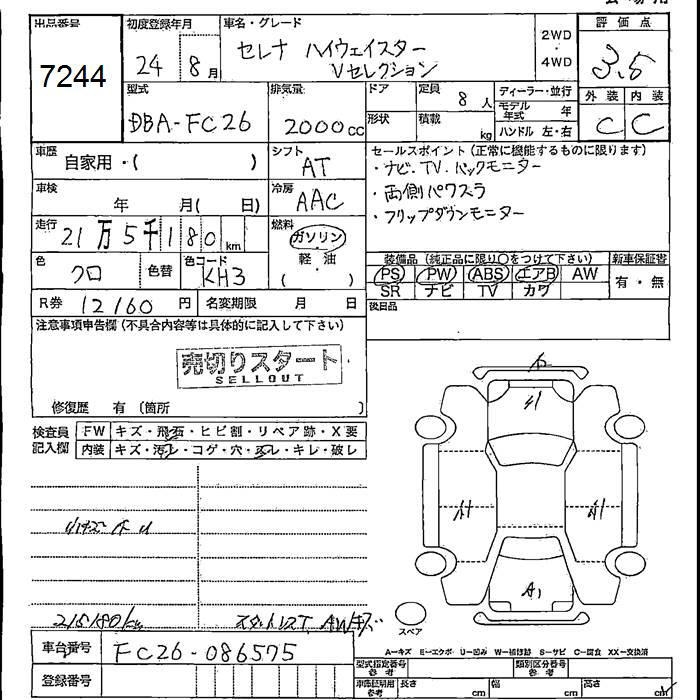 出品番号
7244
初度登録年月
24 8月
車名・グレード
セレナ ハイウェイスター
Vセレクション
2WD
・
4WD
評価点
3.5
外装 内装
C C
型式
DBA-FC26
排気量
2000cc
ドア
定員
8人
ディーラー・並行
モデル年式 年
形状
積載
kg
ハンドル 左・右
車歴
自家用・( )
シフト
AT
セールスポイント(正常に機能するものに限ります)
・ナビ、TV、バックモニター
・両側パワスラ
・フリップダウンモニター
車検
年 月( 日)
冷房
AAC
走行
21万5千180km
燃料
ガソリン
軽・油
( )
色
クロ
色替
色コード
KH3
装備品(純正品に限り〇をつけて下さい)
新車保証書
PS PW ABS エアB AW
有・無
SR ナビ TV カワ
R券 12160円
名変期限 月 日
後日品
注意事項申告欄(不具合内容等は具体的に記入して下さい)
売切りスタート
SELLOUT
修復歴 有〔箇所 〕
検査員記入欄
FW キズ・飛石・ヒビ割・リペア跡・X要
内装 キズ・汚れ・コゲ・穴・スレ・キレ・破レ
A1
215180km
スタットレスT、AWキズ
スペア
A=キズ E=エクボ U=凹み W=補修跡 S=サビ C=腐食 XX=交換済
車台番号
FC26-086575
登録番号
型式指定番号
参考
類別区分番号
参考
車体証明用
参考
長さ cm
幅 cm
高さ cm